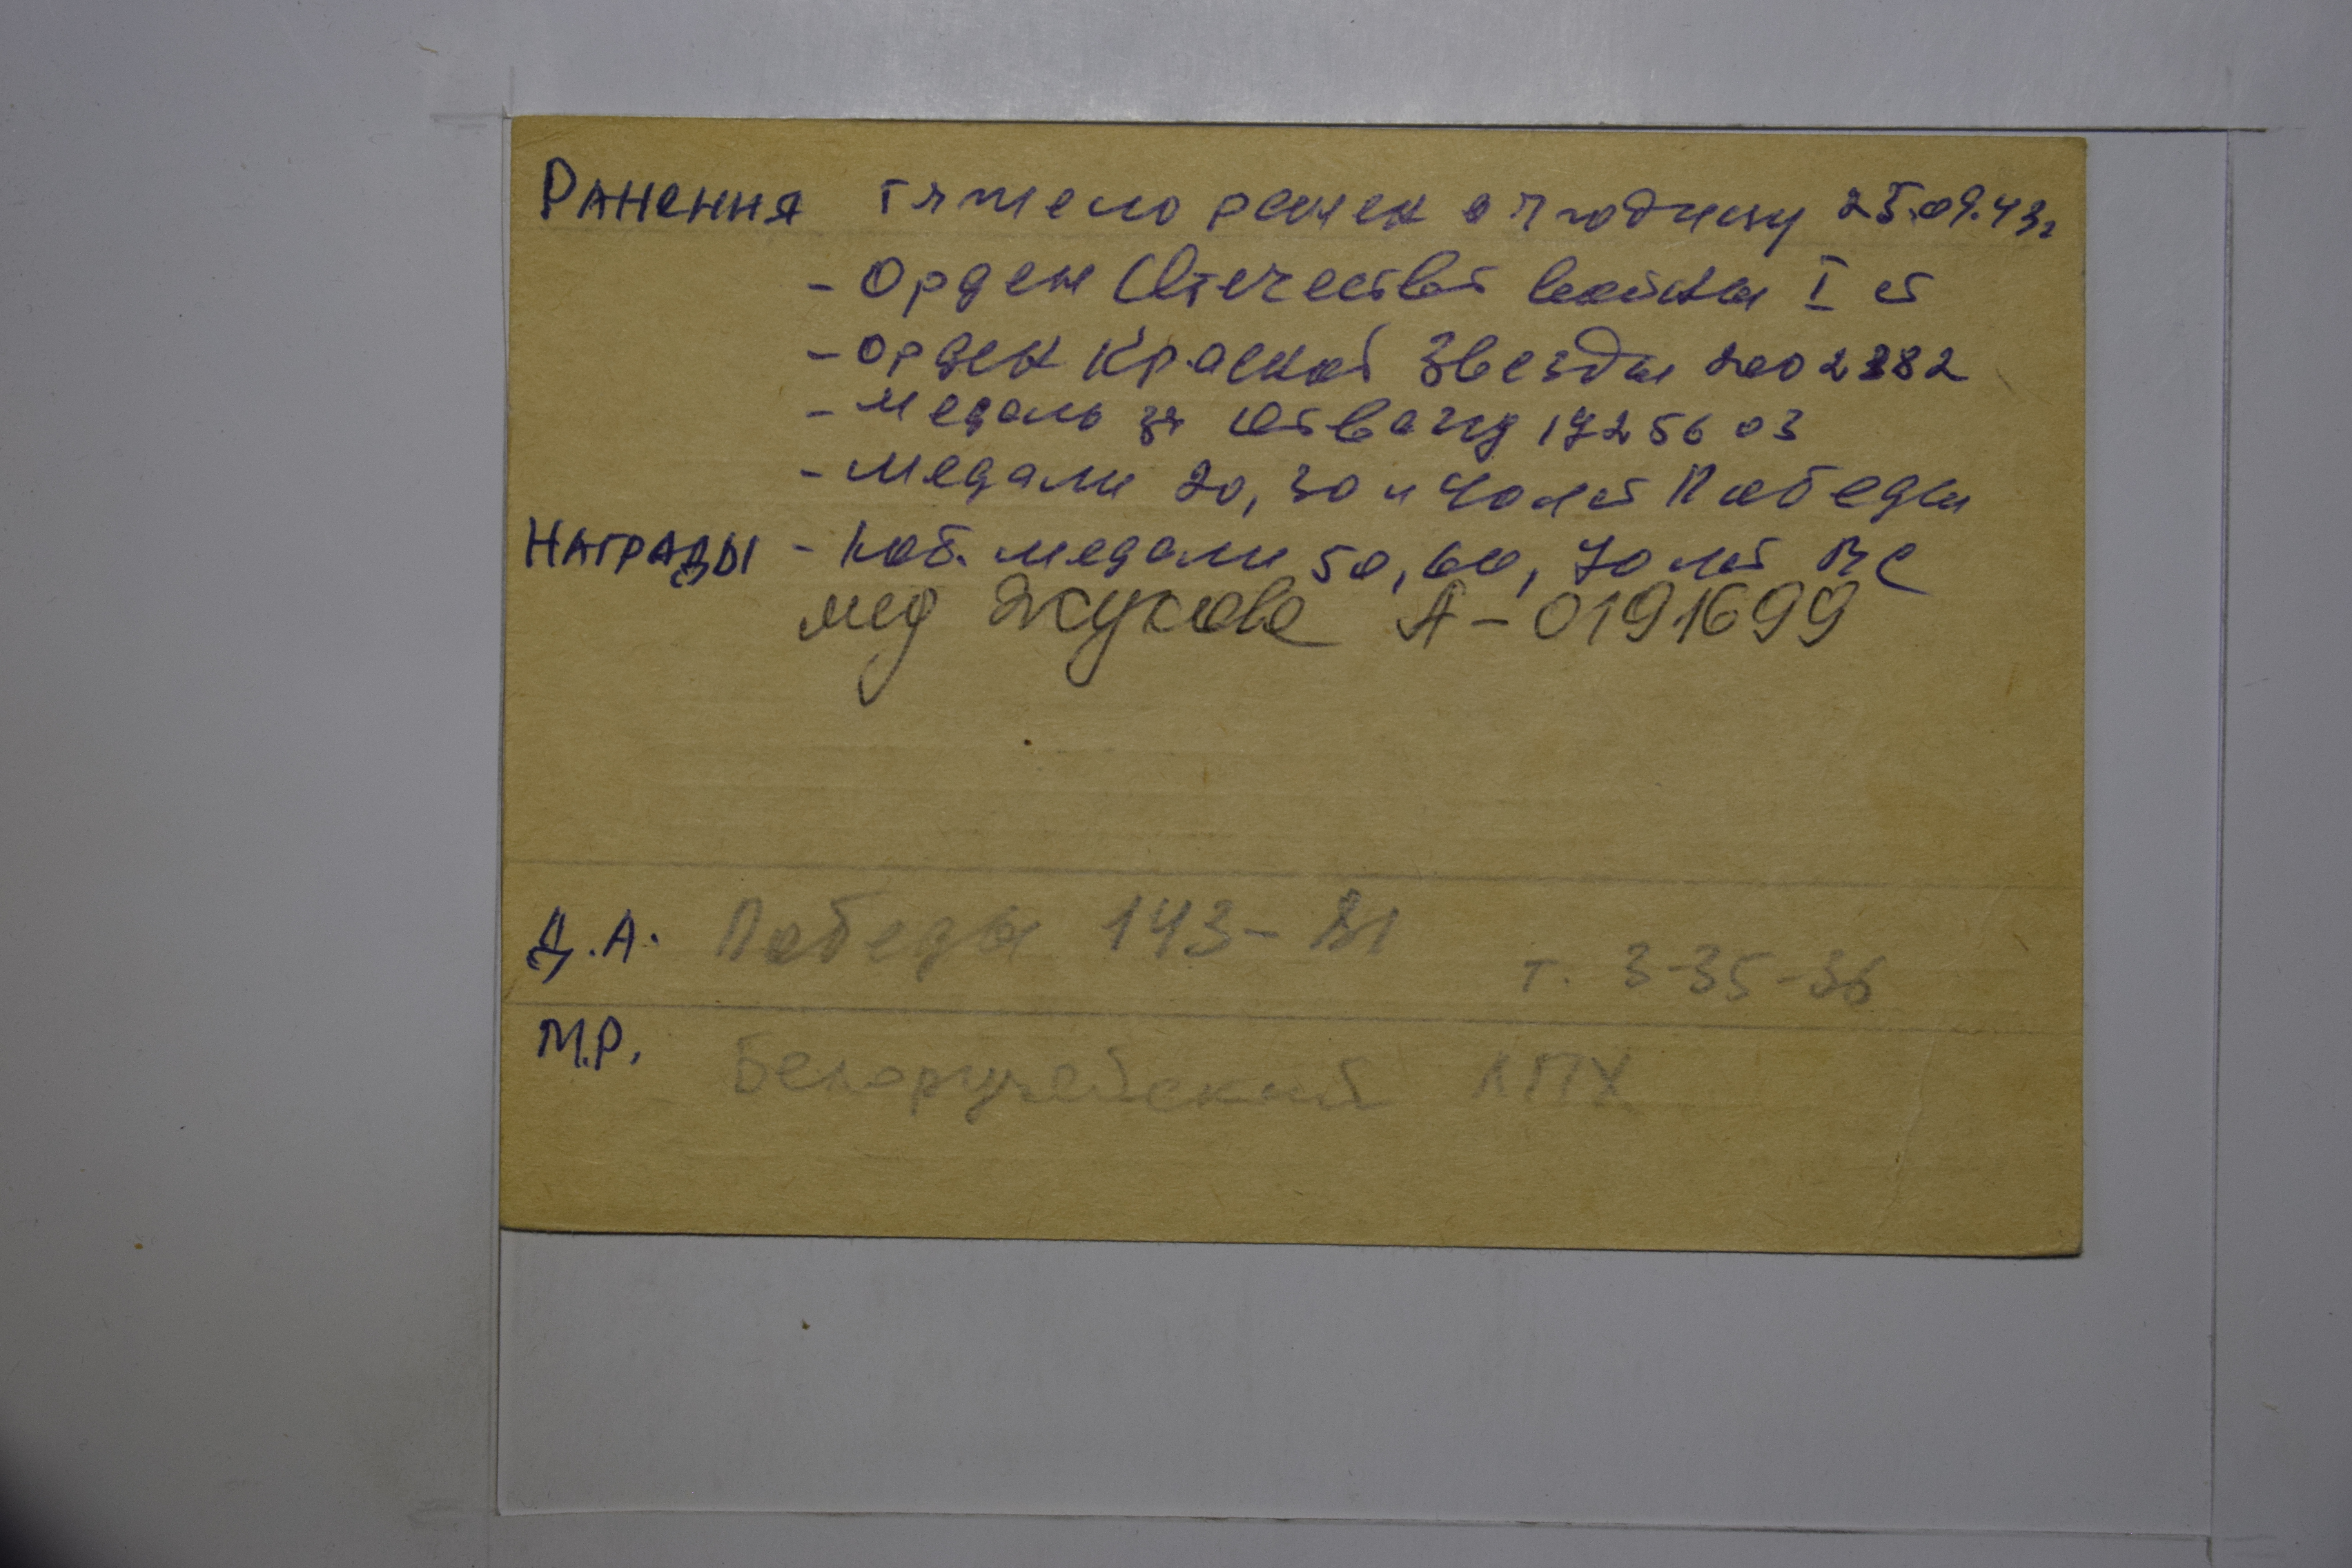 Ранения тяжело ранен в ягодицу 25.09.43г
- Орден Отечеств войны I ст
- Орден Красной Звезды 2002382
- Медаль за Отвагу 1725603
- Медали 20, 30 и 40 лет Победы
Награды - Юб. медали 50, 60, 70 лет ВС
мед Жукова А-0191699
Д.А. Победы 143-
т. 3-35-36
М.Р. Белоручейский ЛПХ